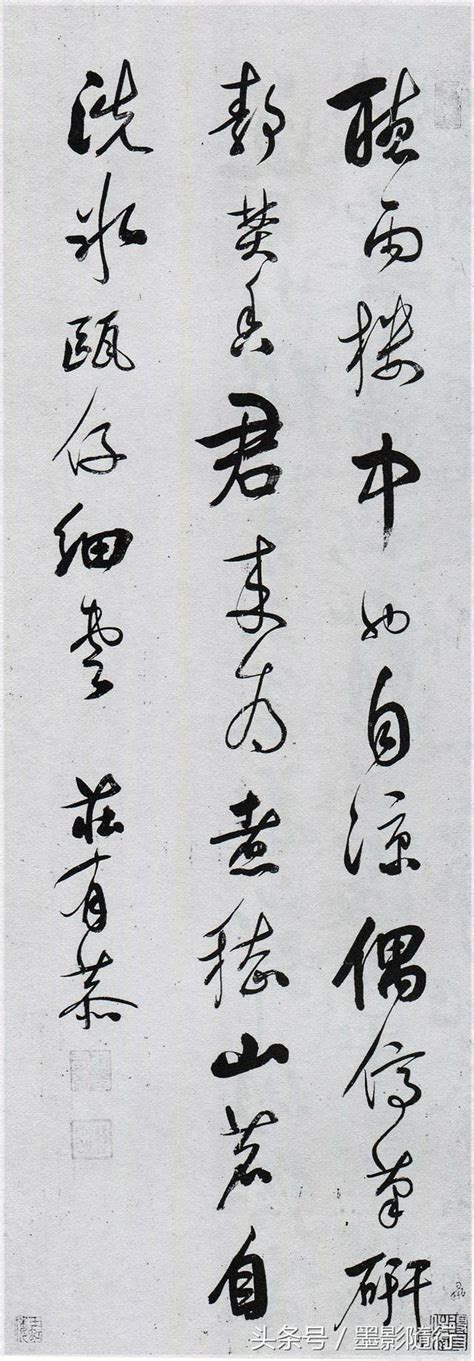 聽雨樓中也自涼偶停筆研
靜焚香君來為煮嵇山茗自
洗冰甌仔細嘗 莊有恭
头条号 / 墨影隨行